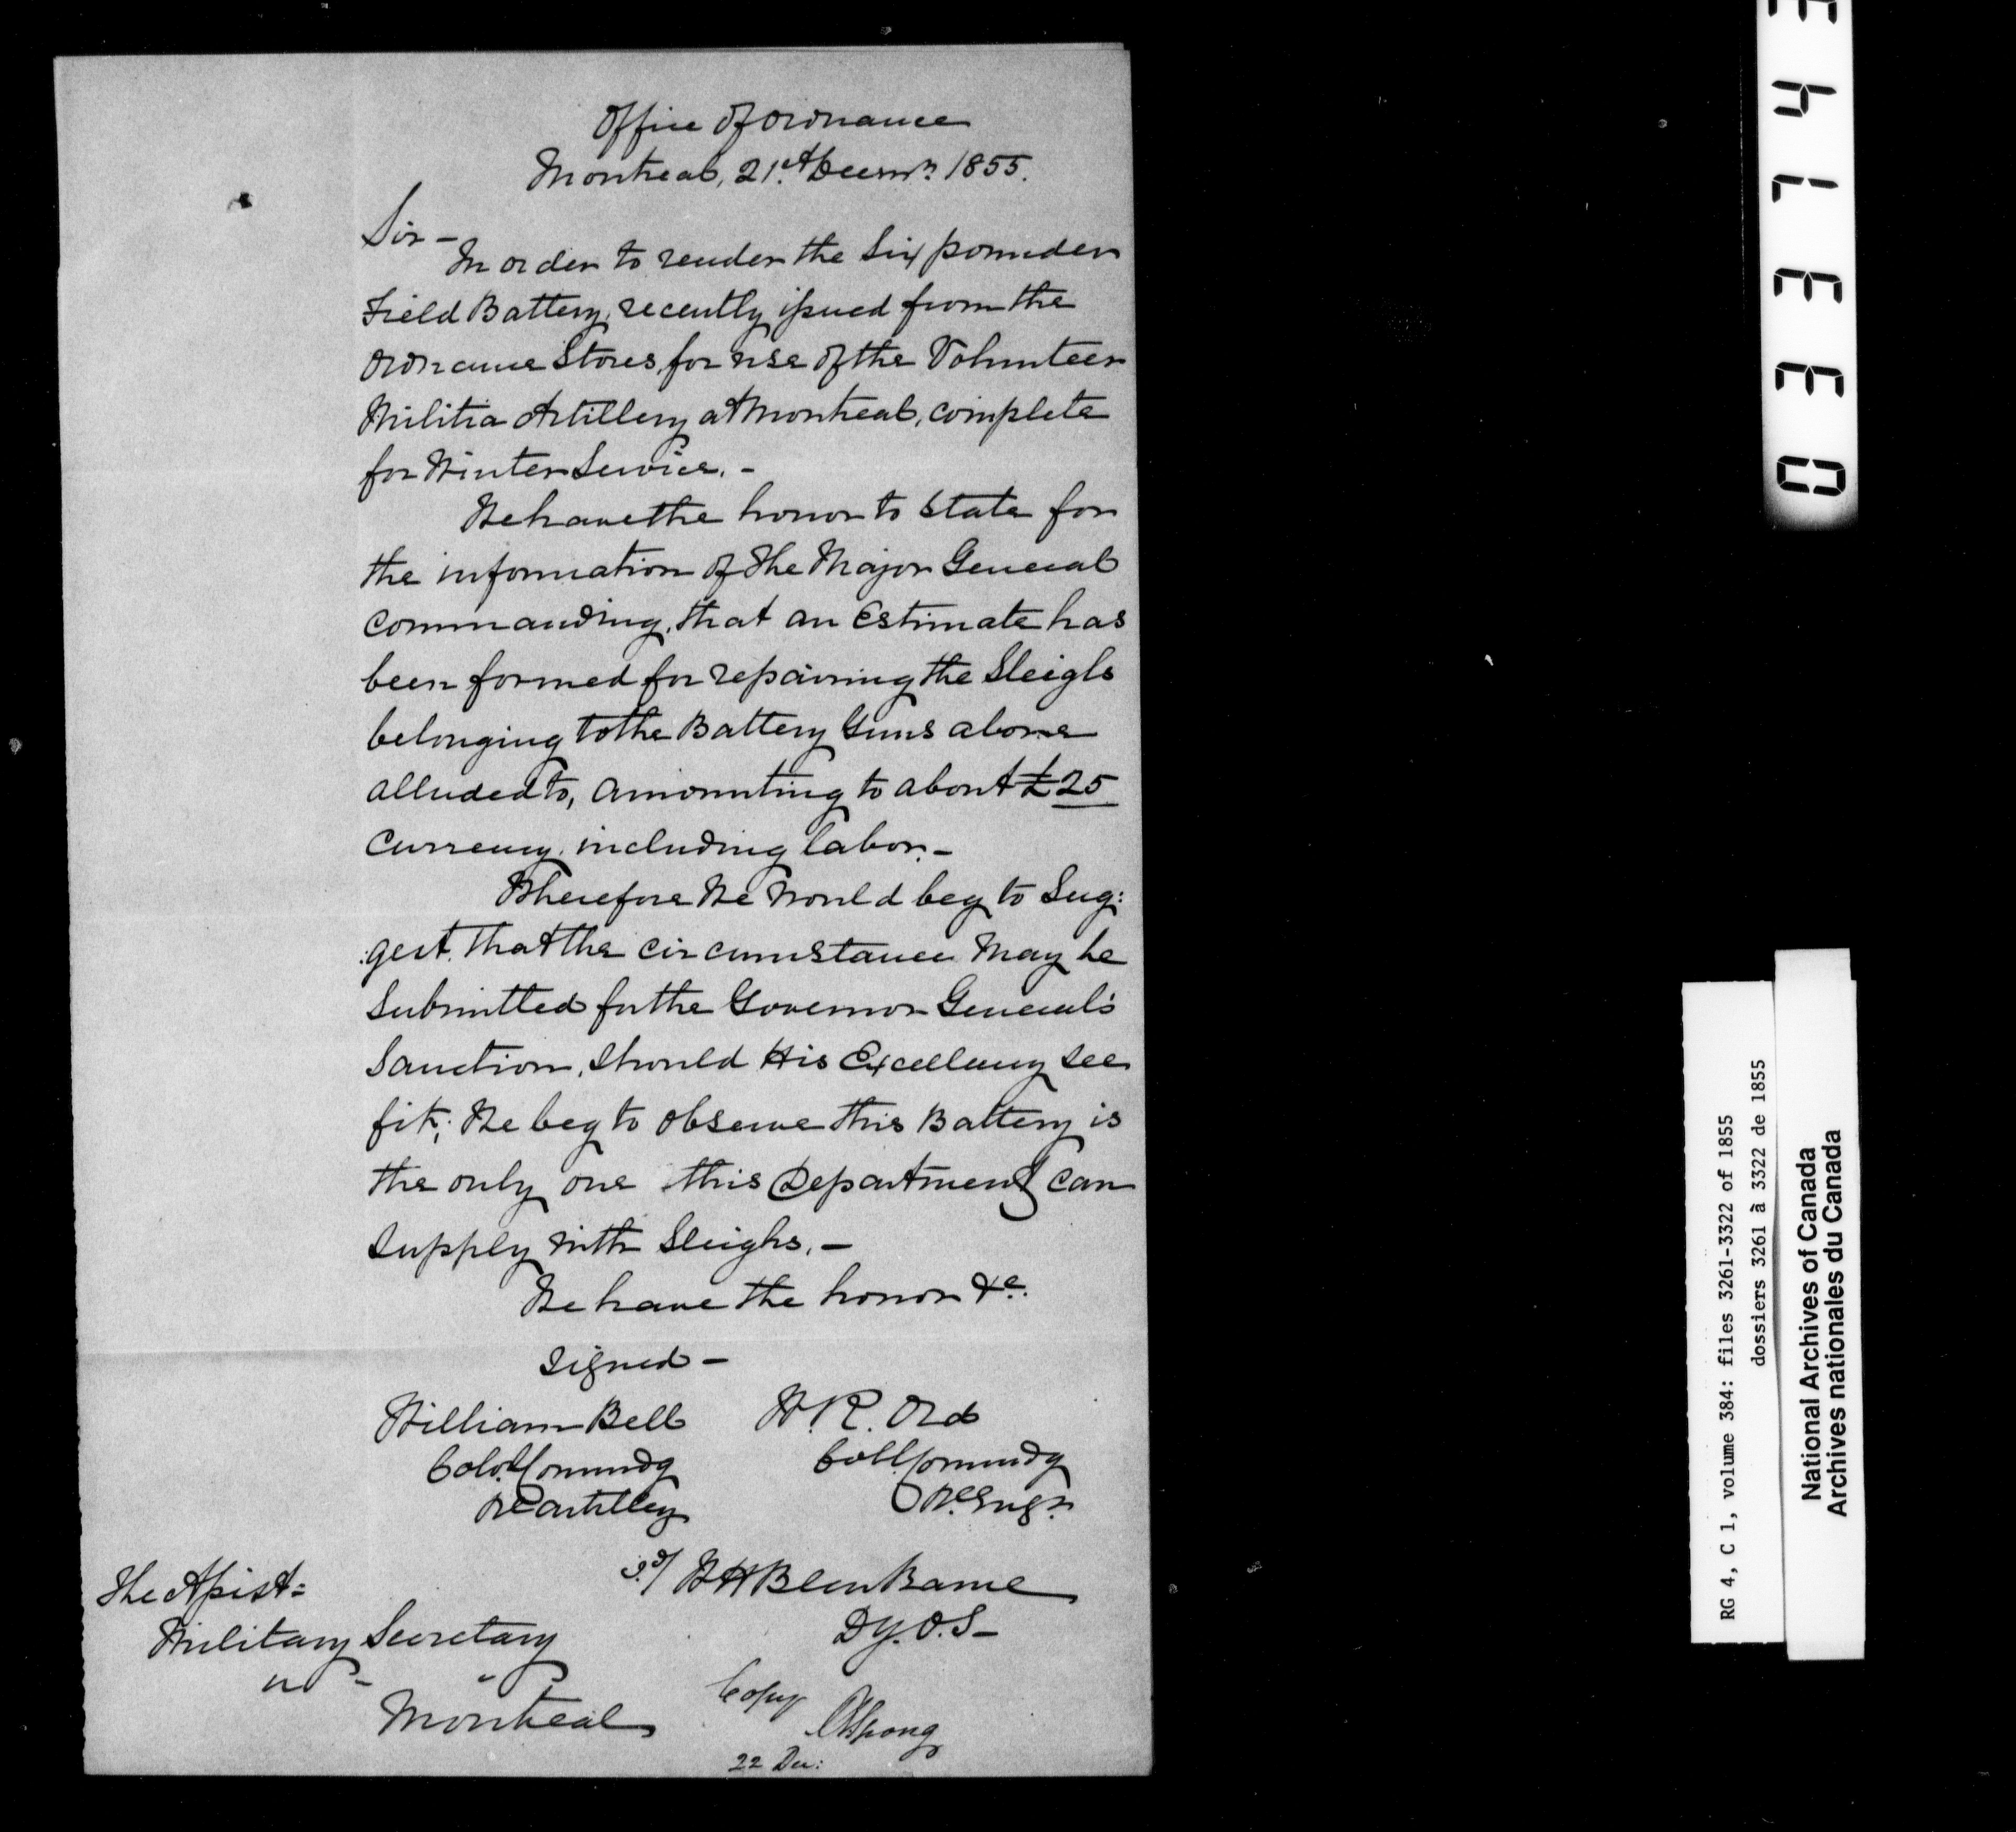 Office of Ordnance
Montreal, 21st Decemr. 1855.
Sir -
In order to render the Six pounder
Field Battery, recently issued from the
Ordnance Stores, for use of the Volunteer
Militia Artillery at Montreal, complete
for Winter Service. -
We have the honor to state for
the information of the Major General
Commanding, that an Estimate has
been formed for repairing the Sleighs
belonging to the Battery Guns above
alluded to, amounting to about £25
Currency, including labor. -
Wherefore We would beg to Sug:
:gest, that the circumstance may be
Submitted for the Governor General's
Sanction, should His Excellency see
fit; We beg to observe this Battery is
the only one this Department can
supply with Sleighs. -
We have the honor &c.
Signed -
William Bell W. R. Ord
Colol. Commndg Coll. Commndg
Rl Artillery Rl. Engrs.
sd/ W H Blenkarne
Dy. O. S -
The Assist=
Military Secretary
Montreal
Copy
22 Dec:
03374 3
RG 4, C 1, volume 384: files 3261-3322 of 1855
dossiers 3261 à 3322 de 1855
National Archives of Canada
Archives nationales du Canada